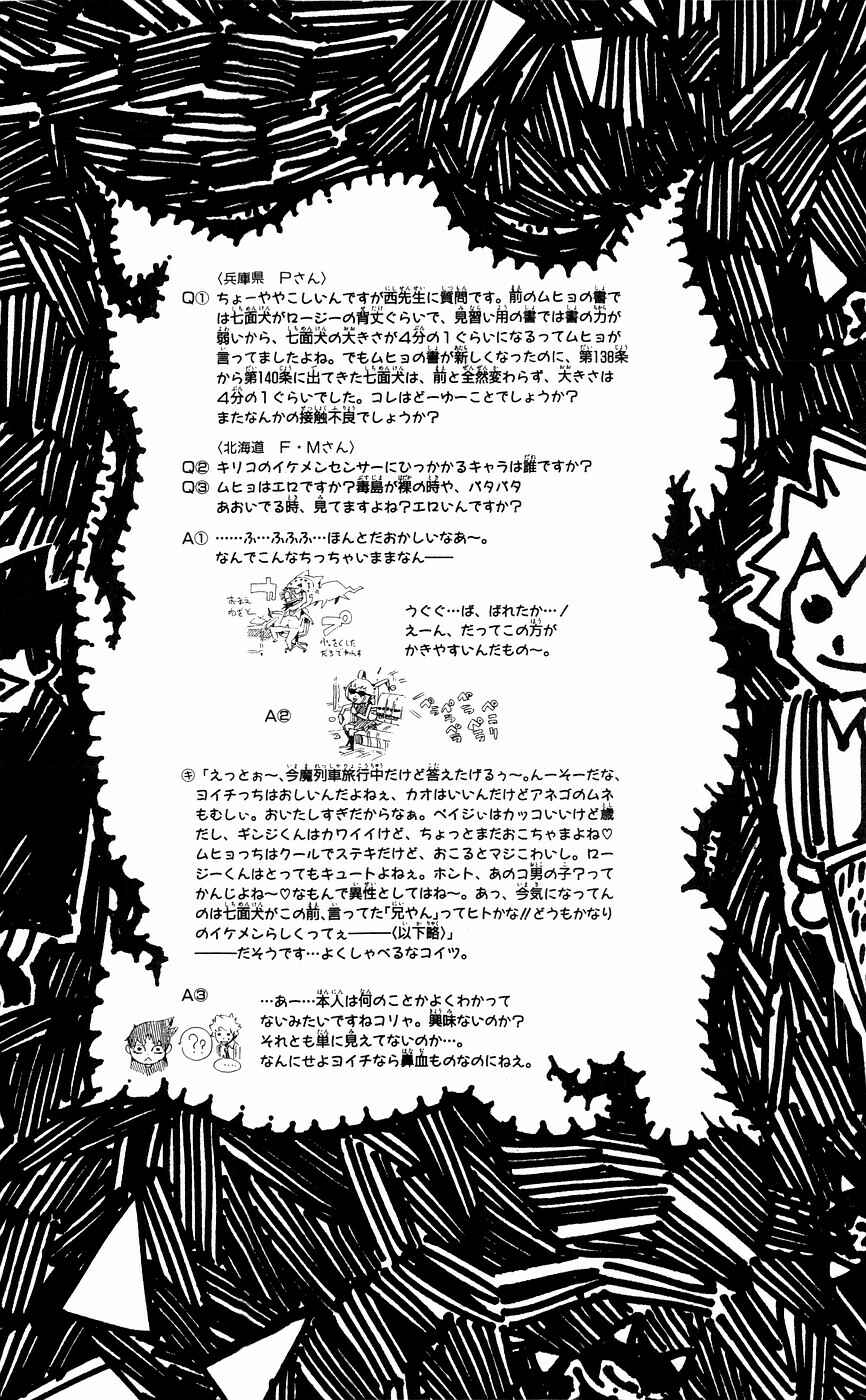 〈兵庫県　Pさん〉
Q① ちょーややこしいんですが西先生に質問です。前のムヒョの書で
は七面犬がロージーの背丈ぐらいで、見習い用の書では書の力が
弱いから、七面犬の大きさが4分の1ぐらいになるってムヒョが
言ってましたよね。でもムヒョの書が新しくなったのに、第138条
から第140条に出てきた七面犬は、前と全然変わらず、大きさは
4分の1ぐらいでした。コレはどーゆーことでしょうか?
またなんかの接触不良でしょうか?
〈北海道　F・Mさん〉
Q② キリコのイケメンセンサーにひっかかるキャラは誰ですか?
Q③ ムヒョはエロですか?毒島が裸の時や、パタパタ
あおいでる時、見てますよね?エロいんですか?
A① ……ふ…ふふふ…ほんとだおかしいなあ〜。
なんでこんなちっちゃいままなん——
おまえ
わざと
小さくした
だろてめえ
うぐぐ…ば、ばれたか…!
えーん、だってこの方が
かきやすいんだもの〜。
A②
ペラ
ペラ
ペラ
㋖「えっとぉ〜、今魔列車旅行中だけど答えたげるぅ〜。んーそーだな、
ヨイチっちはおしいんだよねぇ、カオはいいんだけどアネゴのムネ
もむしぃ。おいたしすぎだからなぁ。ペイジぃはカッコいいけど歳
だし、ギンジくんはカワイイけど、ちょっとまだおこちゃまよね♡
ムヒョっちはクールでステキだけど、おこるとマジこわいし。ロー
ジーくんはとってもキュートよねぇ。ホント、あのコ男の子?って
かんじよね〜♡なもんで異性としてはね〜。あっ、今気になってん
のは七面犬がこの前、言ってた「兄やん」ってヒトかな!!どうもかなり
のイケメンらしくってぇ———〈以下略〉」
———だそうです…よくしゃべるなコイツ。
A③
…あー…本人は何のことかよくわかって
ないみたいですねコリャ。興味ないのか?
それとも単に見えてないのか…。
なんにせよヨイチなら鼻血ものなのにねえ。
??